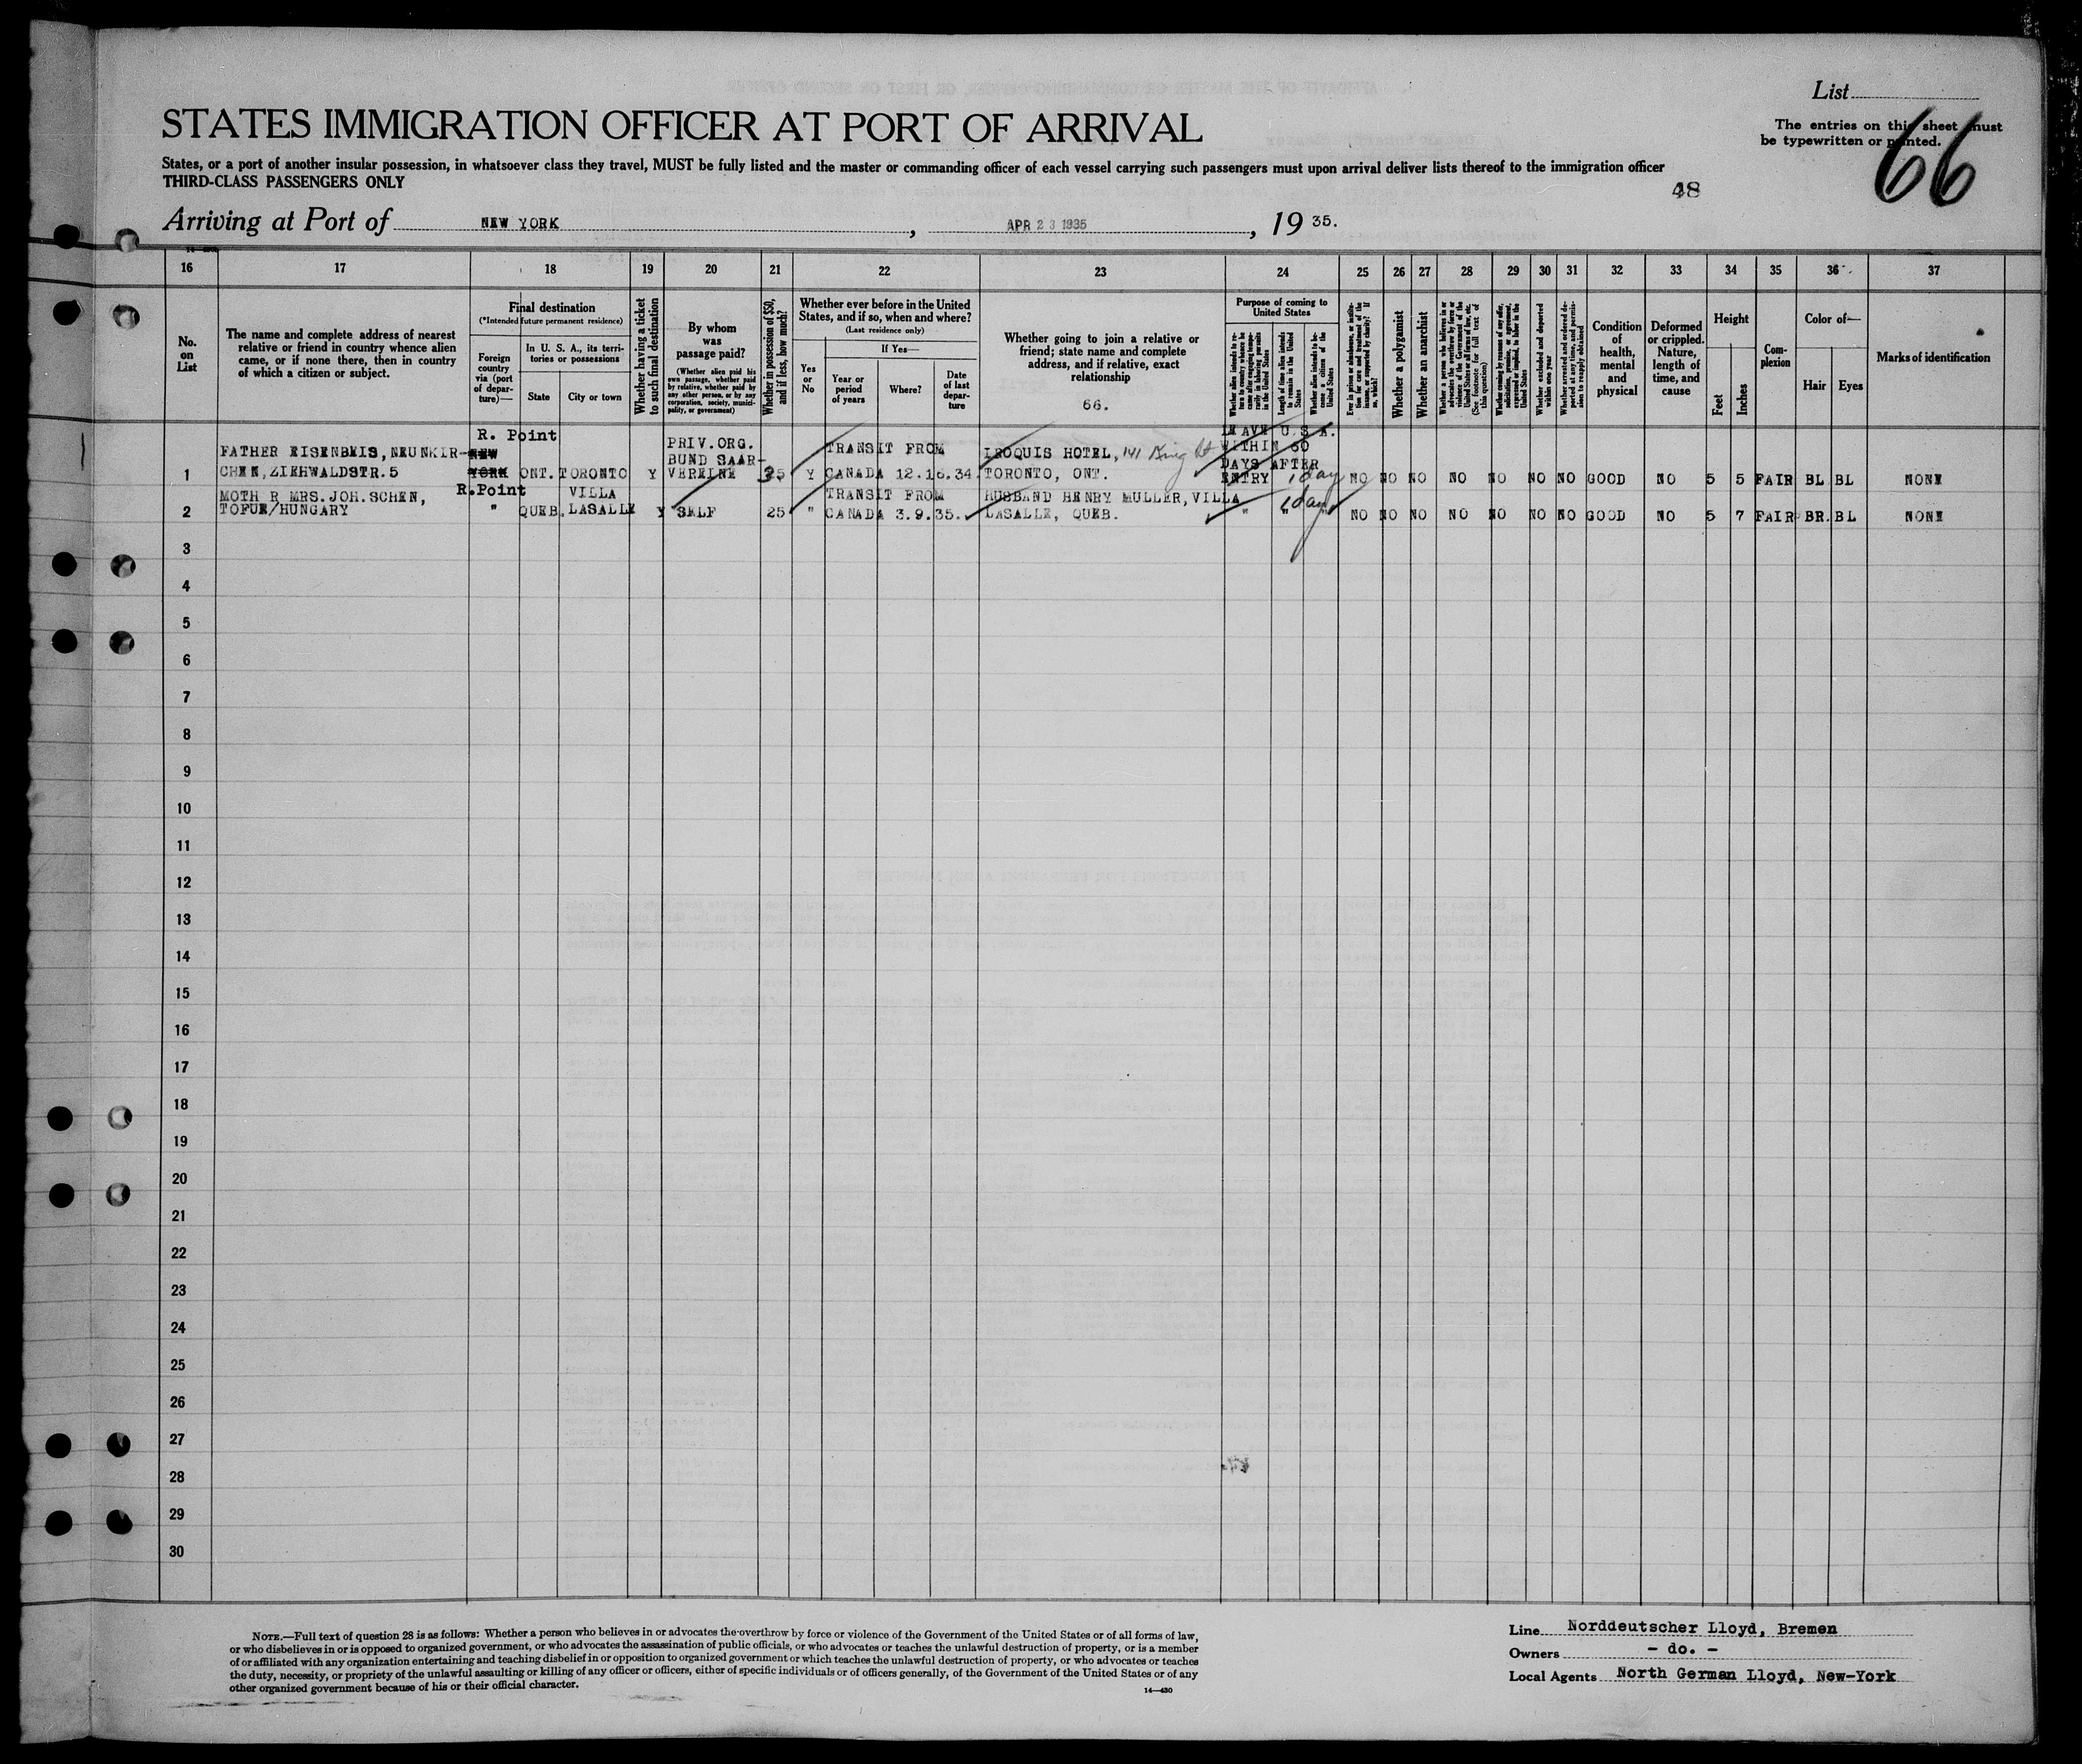 List
STATES IMMIGRATION OFFICER AT PORT OF ARRIVAL
The entries on this sheet must
be typewritten or printed.
66
States, or a port of another insular possession, in whatsoever class they travel, MUST be fully listed and the master or commanding officer of each vessel carrying such passengers must upon arrival deliver lists thereof to the immigration officer
THIRD-CLASS PASSENGERS ONLY
48
Arriving at Port of NEW YORK , APR 23 1935 , 19 35.
16 17 18 19 20 21 22 23 24 25 26 27 28 29 30 31 32 33 34 35 36 37
No. on List
The name and complete address of nearest
relative or friend in country whence alien
came, or if none there, then in country
of which a citizen or subject.
Final destination
(*Intended future permanent residence)
Foreign country via (port of departure)—
In U. S. A., its territories or possessions
State
City or town
Whether having a ticket to such final destination
By whom was passage paid?
(Whether alien paid his own passage, whether paid by relative, whether paid by any other person, or by any corporation, society, municipality, or government)
Whether in possession of $50, and if less, how much?
Whether ever before in the United
States, and if so, when and where?
(Last residence only)
Yes or No
If Yes—
Year or period of years
Where?
Date of last departure
Whether going to join a relative or
friend; state name and complete
address, and if relative, exact
relationship
66.
Purpose of coming to United States
Whether alien intends to return to country whence he came after engaging temporarily in laboring pursuits in the United States
Length of time alien intends to remain in the United States
Whether alien intends to become a citizen of the United States
Ever in prison or almshouse, or institution for care and treatment of the insane, or supported by charity? If so, which?
Whether a polygamist
Whether an anarchist
Whether a person who believes in or advocates the overthrow by force or violence of the Government of the United States or all forms of law, etc. (See footnote for full text of this question)
Whether coming by reason of any offer, solicitation, promise, or agreement, expressed or implied, to labor in the United States
Whether excluded and deported within one year
Whether arrested and ordered deported at any time, and permission to reapply obtained
Condition of health, mental and physical
Deformed or crippled. Nature, length of time, and cause
Height
Feet
Inches
Complexion
Color of—
Hair
Eyes
Marks of identification
1 FATHER EISENBEIS, NEUNKIR-
CHEN, ZIEHWALDSTR. 5
R. Point
NEW
YORK ONT. TORONTO Y
PRIV. ORG.
BUND SAAR-
VEREINE 25 Y
TRANSIT FROM
CANADA 12.16.34.
IROQUIS HOTEL, 141 King St
TORONTO, ONT.
LEAVE U.S.A.
WITHIN 60
DAYS AFTER
ENTRY 1 day NO NO NO NO NO NO NO GOOD NO 5 5 FAIR BL BL NONE
2 MOTH R MRS. JOH. SCHEN,
TOFUE/HUNGARY
R.Point
" QUEB. VILLA
LASALLE Y SELF 25 "
TRANSIT FROM
CANADA 3.9.35.
HUSBAND HENRY MULLER, VILLA
LASALLE, QUEB.
" " " 1 day NO NO NO NO NO NO NO GOOD NO 5 7 FAIR BR. BL NONE
3
4
5
6
7
8
9
10
11
12
13
14
15
16
17
18
19
20
21
22
23
24
25
26
27
28
29
30
NOTE.—Full text of question 28 is as follows: Whether a person who believes in or advocates the overthrow by force or violence of the Government of the United States or of all forms of law,
or who disbelieves in or is opposed to organized government, or who advocates the assassination of public officials, or who advocates or teaches the unlawful destruction of property, or is a member
of or affiliated with any organization entertaining and teaching disbelief in or opposition to organized government or which teaches the unlawful destruction of property, or who advocates or teaches
the duty, necessity, or propriety of the unlawful assaulting or killing of any officer or officers, either of specific individuals or of officers generally, of the Government of the United States or of any
other organized government because of his or their official character.
14—430
Line Norddeutscher Lloyd, Bremen
Owners - do. -
Local Agents North German Lloyd, New-York